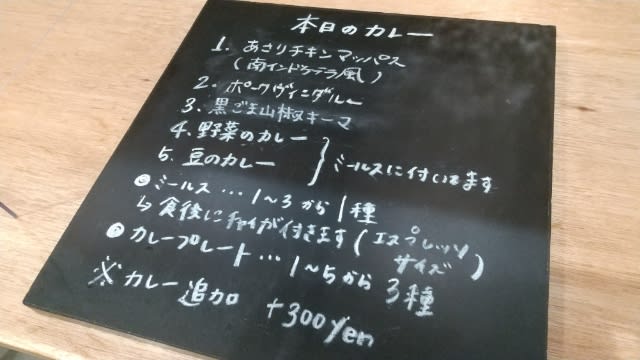 本日のカレー
1. あさりチキンマッパス
(南インドケララ風)
2. ポークヴィンダルー
3. 黒ごま山椒キーマ
4. 野菜のカレー
5. 豆のカレー
ミールスに付いてます
ミールス…1〜3から1種
↳食後にチャイが付きます(エスプレッソサイズ)
カレープレート…1〜5から3種
※カレー追加 +300yen